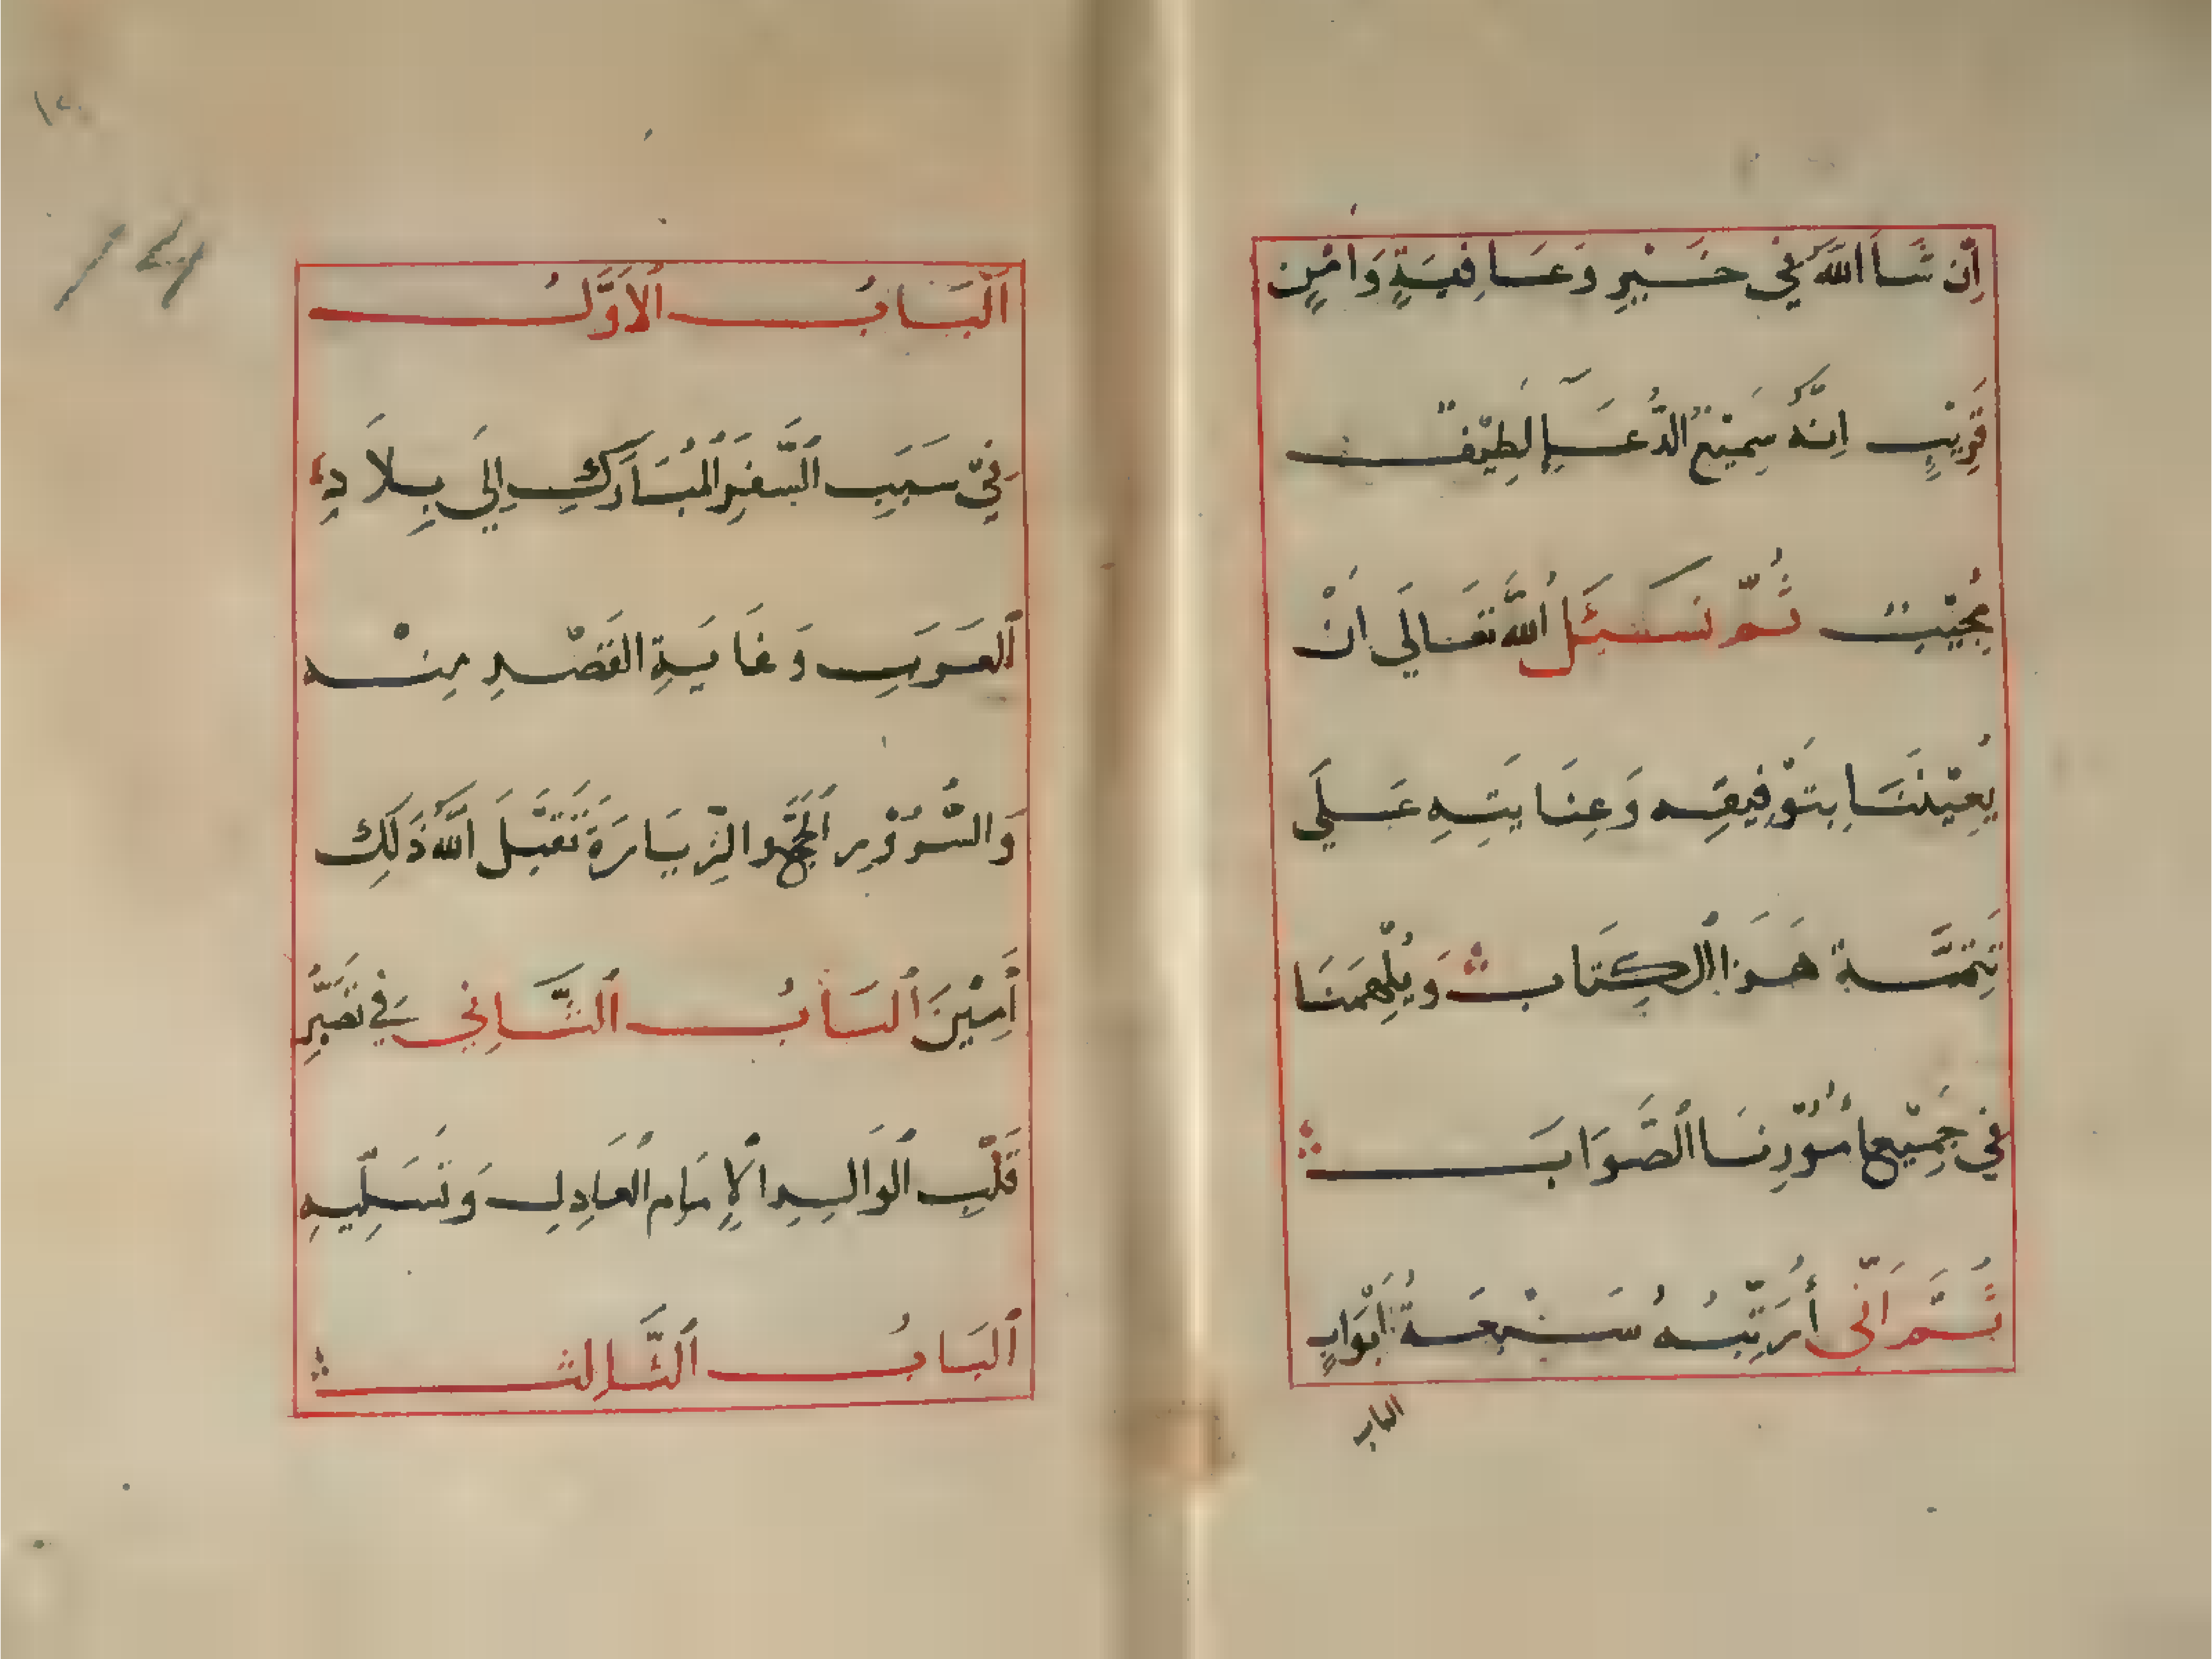 اِنْ شَاَ اللَّهُ فِي خَيْرٍ وَعَافِيَةٍ وَاَمْنٍ
قَرِيْبٍ اِنَّهُ سَمِيْعُ الدُّعَآءِ لَطِيْفٌ
مُجِيْبٌ ثُمَّ نَسْئَلُ اللَّهَ تَعَالَي اَنْ
يُعِيْنَنَا بِتَوْفِيقِهِ وَعِنَايَتِهِ عَلَي
تَتِمَّةِ هَذَا الْكِتَابِ وَيُلْهِمَنَا
فِي جَمِيْعِ اُمُوْرِنَا الصَّوَابَ
ثُمَّ اَنِّي أُرَتِّبُهُ سَبْعَةُ اَبْوَابٍ
الباب
١٢
14
اَلْبَابُ الْاَوَّلُ
فِيْ سَبَبِ السَّفَرِ الْمُبَارَكِ اِلَي بِلَادِ
الْعَرَبِ وَغَايَةِ الْقَصْدِ مِنْه
وَالسُّرُوْرِ الْحَجِّ وَالزِّيَارَةِ تَقَبَّلَ اللَّهُ ذَلِكَ
أَمِيْنَ اَلْبَابُ الثَّانِي فِي تَصَبُّرِ
قَلْبِ الْوَالِدِ الْاِمَامِ الْعَادِلِ وَتَسَلِّيهِ
اَلْبَابُ الثَّالِث